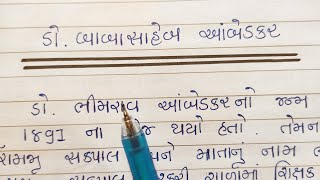 ડો. બાબાસાહેબ આંબેડકર
ડો. ભીમરાવ આંબેડકરનો જન્મ
1891 ના થયો હતો. તેમન
સકપાલ અને માતાનું નામ
શાળામાં શિક્ષક